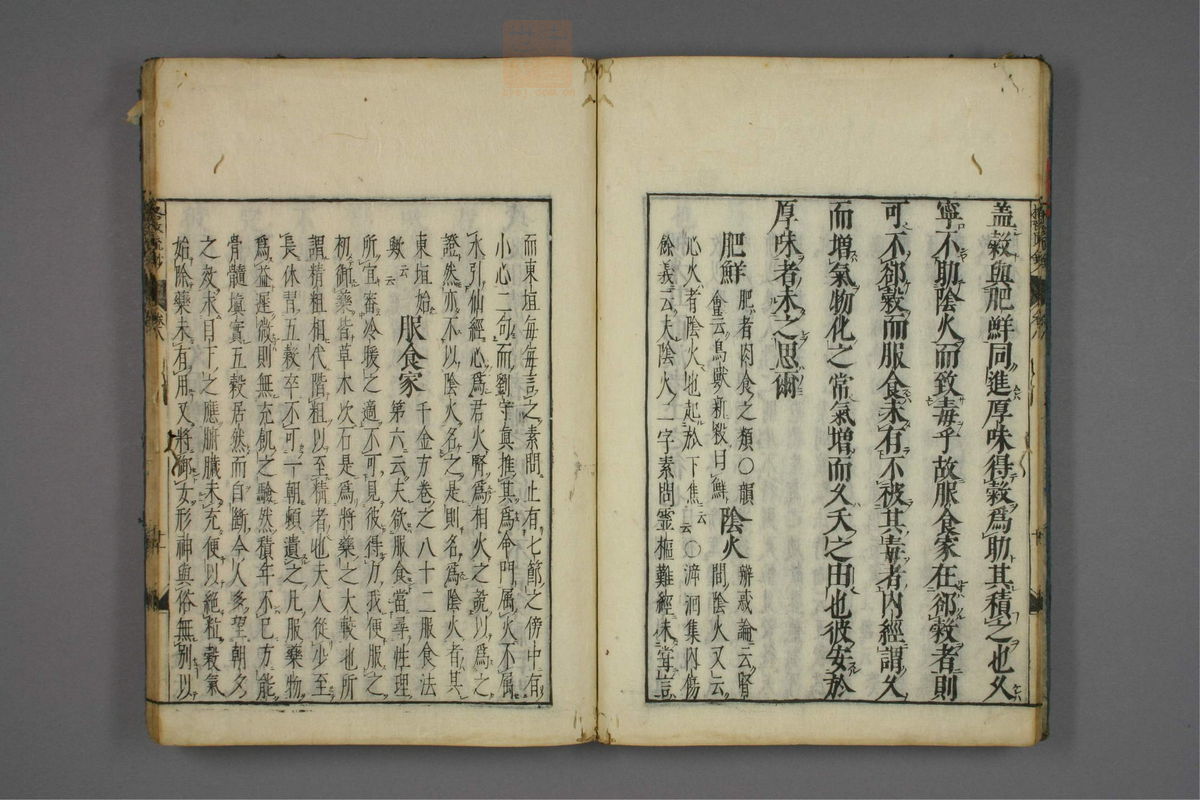 蓋穀與肥鮮同進厚味得穀爲助其積之也久
寧不助陰火而致毒乎故服食家在郤穀者則
可不郤穀而服食未有不被其毒者內經謂久
而增氣物化之常氣增而久夭之由也彼安於
厚味者未之思爾
肥鮮 肥者肉食之類○韻
會云鳥獸新殺曰鮮
陰火 辨惑論云腎
間陰火又云
心火者陰火也起於下焦云云○溯洄集內傷
餘義云夫陰火二字素問靈樞難經未嘗言
而東垣每每言之素問止有七節之傍中有
小心二句而劉守眞推其爲命門属火不属
水引仙經心爲君火腎爲相火之說以爲之
證然亦不以陰火名之是則名爲陰火者其
東垣始
歟云
服食家 千金方卷之八十二服食法
第六云夫欲服食當尋性理
所宜審冷暖之適不可見彼得力我便服之
初御藥皆草木次石是爲將藥之大較也所
謂精粗相代階粗以至精者也夫人從少至
長休習五穀卒不可一朝頓遺之凡服藥物
爲益遲微則無充飢之驗然積年不已方能
骨髓塡實五穀居然而自斷今人多望朝夕
之效求目下之應腑臟未充便以絕粒穀氣
始除藥未有用又將御女形神與俗無別以